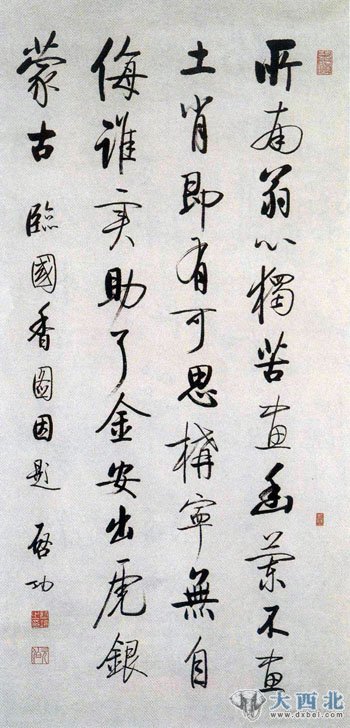 所南翁心獨苦畫幽蘭不畫
土肖即有可思構寧無自
侮誰实助了金安出虎銀
蒙古 臨國香圖因题 启功
大西北
www.dxbei.com